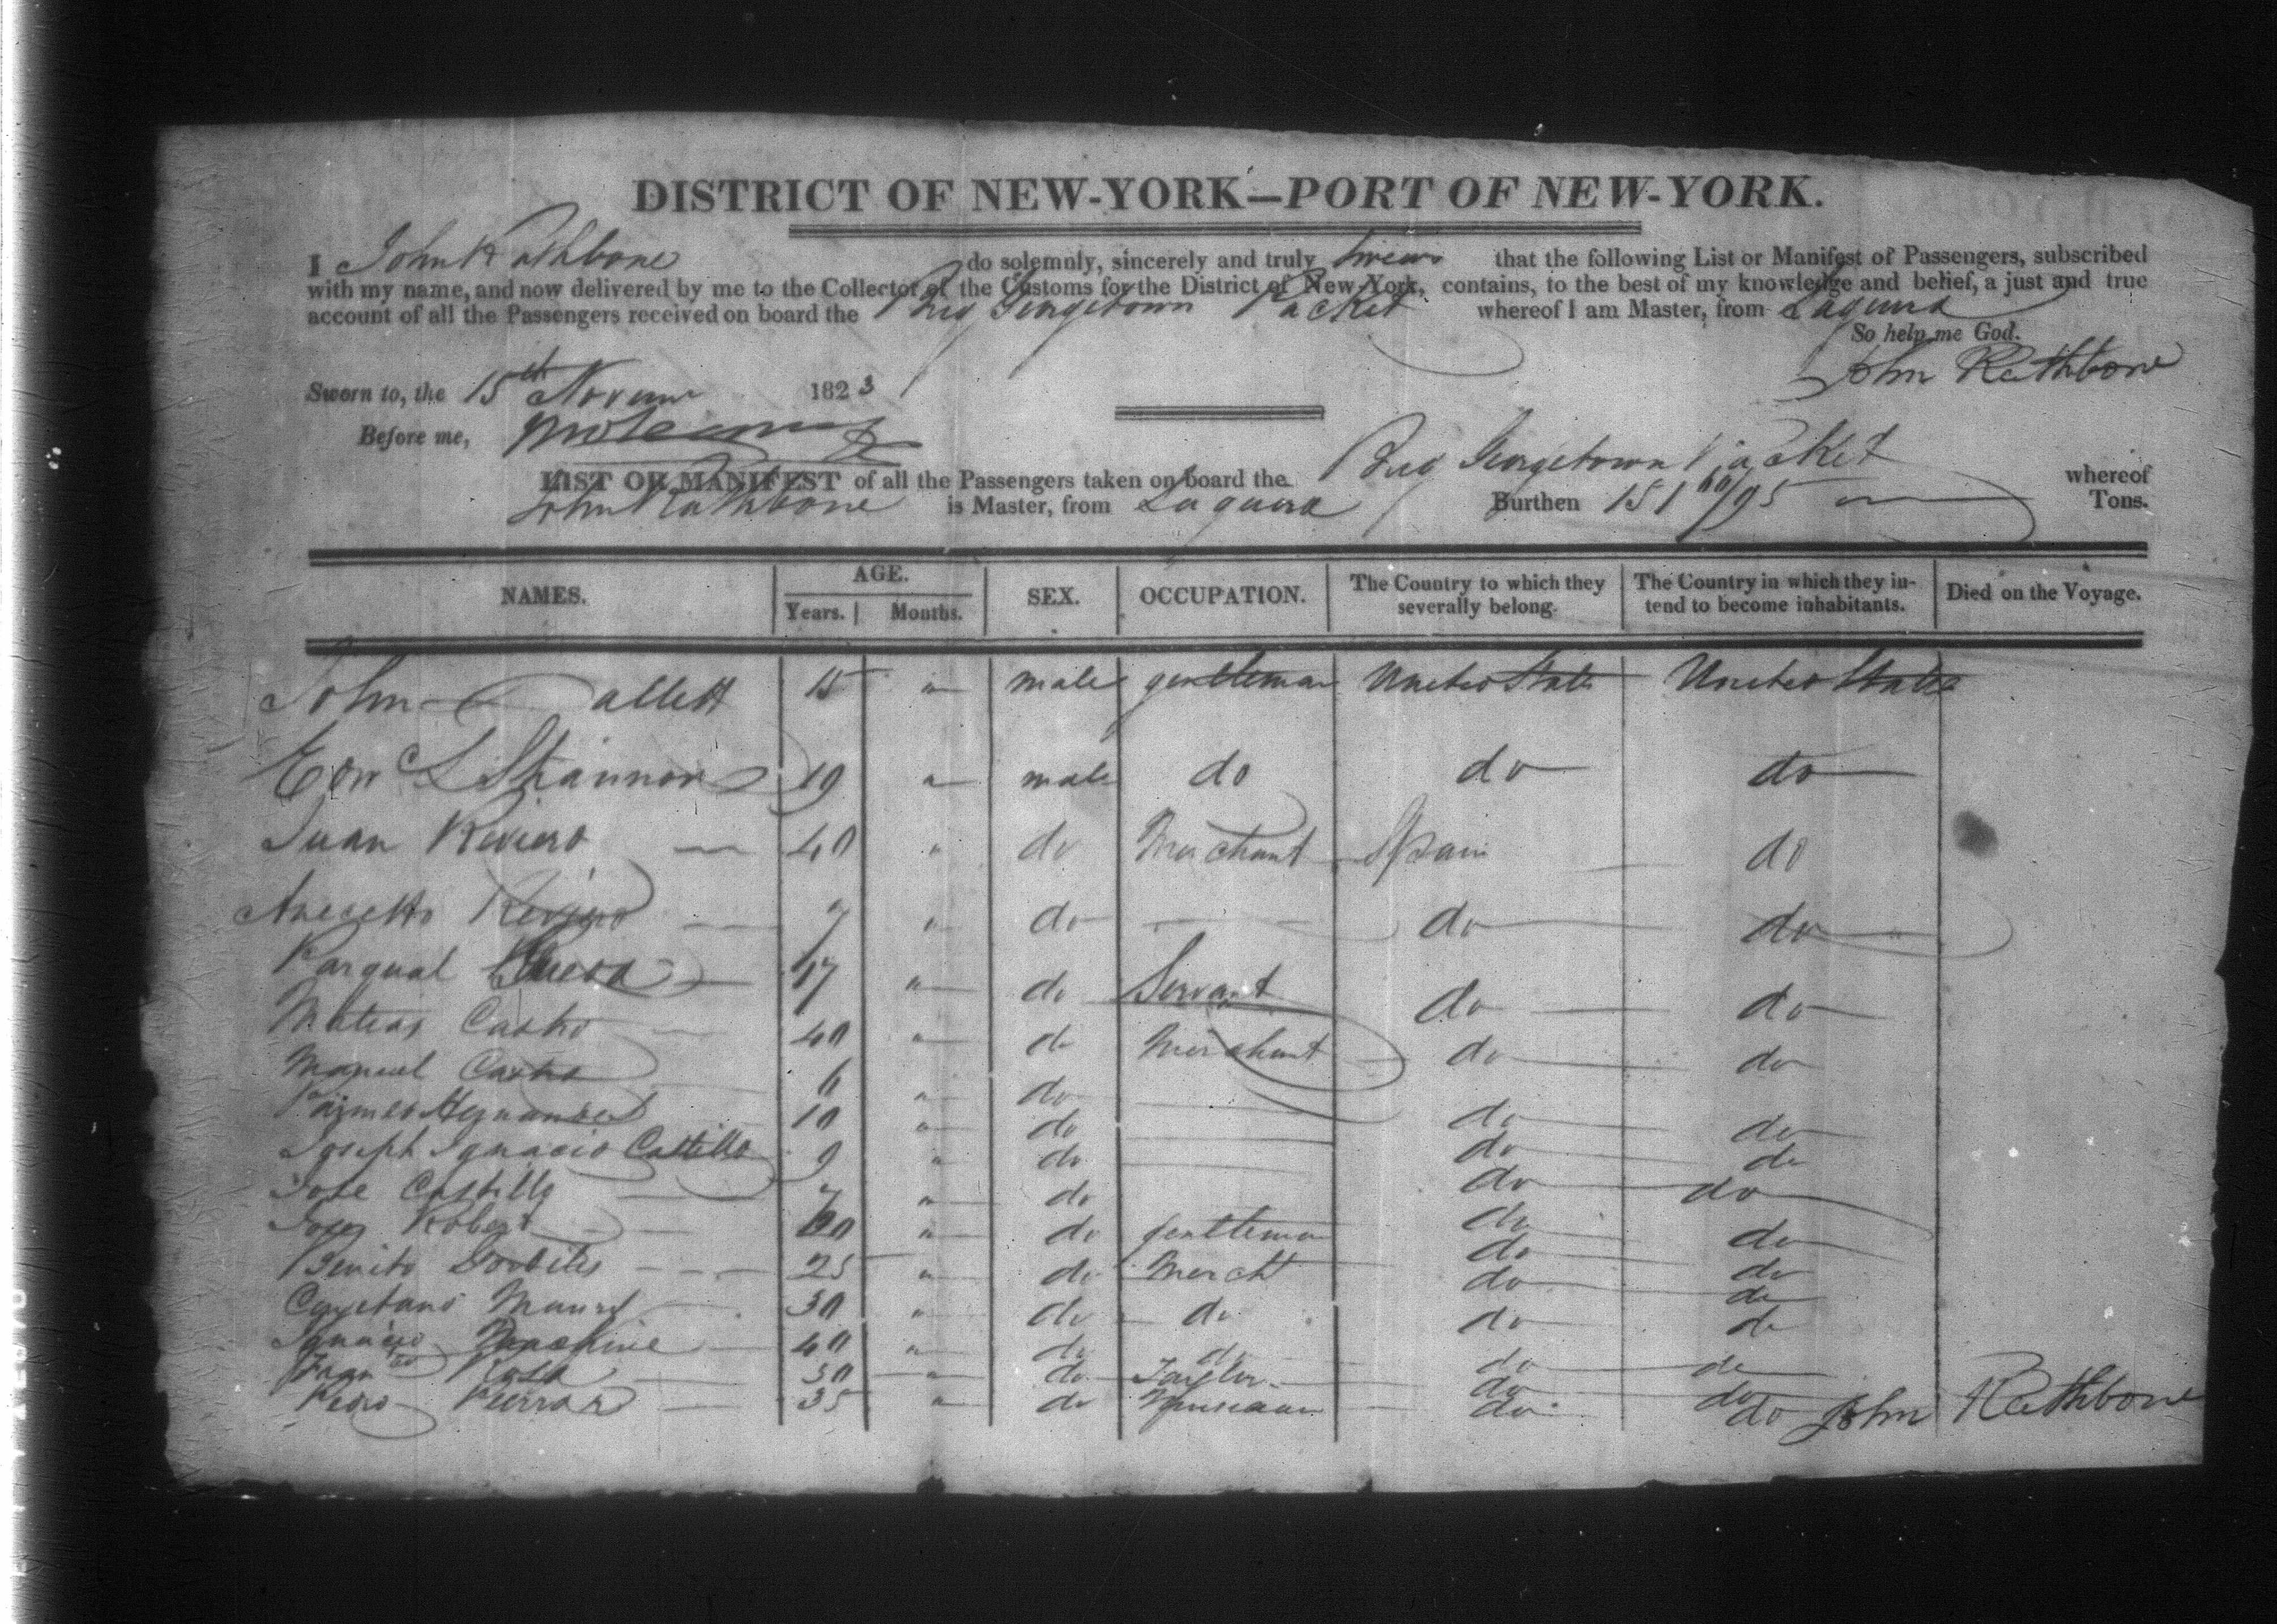 DISTRICT OF NEW-YORK—PORT OF NEW-YORK.
I John Rathbone do solemnly, sincerely and truly swear that the following List or Manifest of Passengers, subscribed
with my name, and now delivered by me to the Collector of the Customs for the District of New York, contains, to the best of my knowledge and belief, a just and true
account of all the Passengers received on board the Brig Georgetown Packet whereof I am Master, from Laguira
So help me God.
John Rathbone
Sworn to, the 15th 1823
Before me,
LIST OR MANIFEST of all the Passengers taken on board the Brig Georgetown Packet whereof
John Rathbone is Master, from Laguira Burthen 151 /95 Tons.
NAMES. AGE. Years. Months. SEX. OCCUPATION. The Country to which they severally belong. The Country in which they intend to become inhabitants. Died on the Voyage.
John 15 " male gentleman United States United States
Shannon 19 " male do do do
Juan Reviero 40 " do Merchant Spain do
Anecetto Reviero 7 " do do do
Parqual 17 " do Servant do do
Matias Castro 40 " do Merchant do do
Manuel Castro 6 " do do do
10 " do do do
Joseph Ignacio Castillo 9 " do do do
Jose Castillo 7 " do do do
Robert " do gentleman do do
Benito 25 " do Mercht do do
Cayetano 30 " do do do do
Ignacio 40 " do do do do
Rosa 30 " do do do
Pedro 35 " do do do
John Rathbone